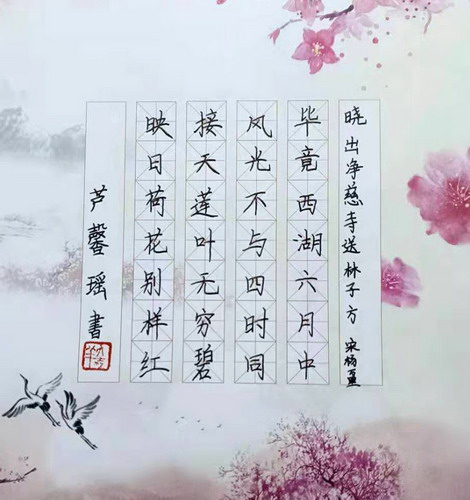 晓出净慈寺送林子方 宋杨万里
毕竟西湖六月中
风光不与四时同
接天莲叶无穷碧
映日荷花别样红
芦馨瑶書